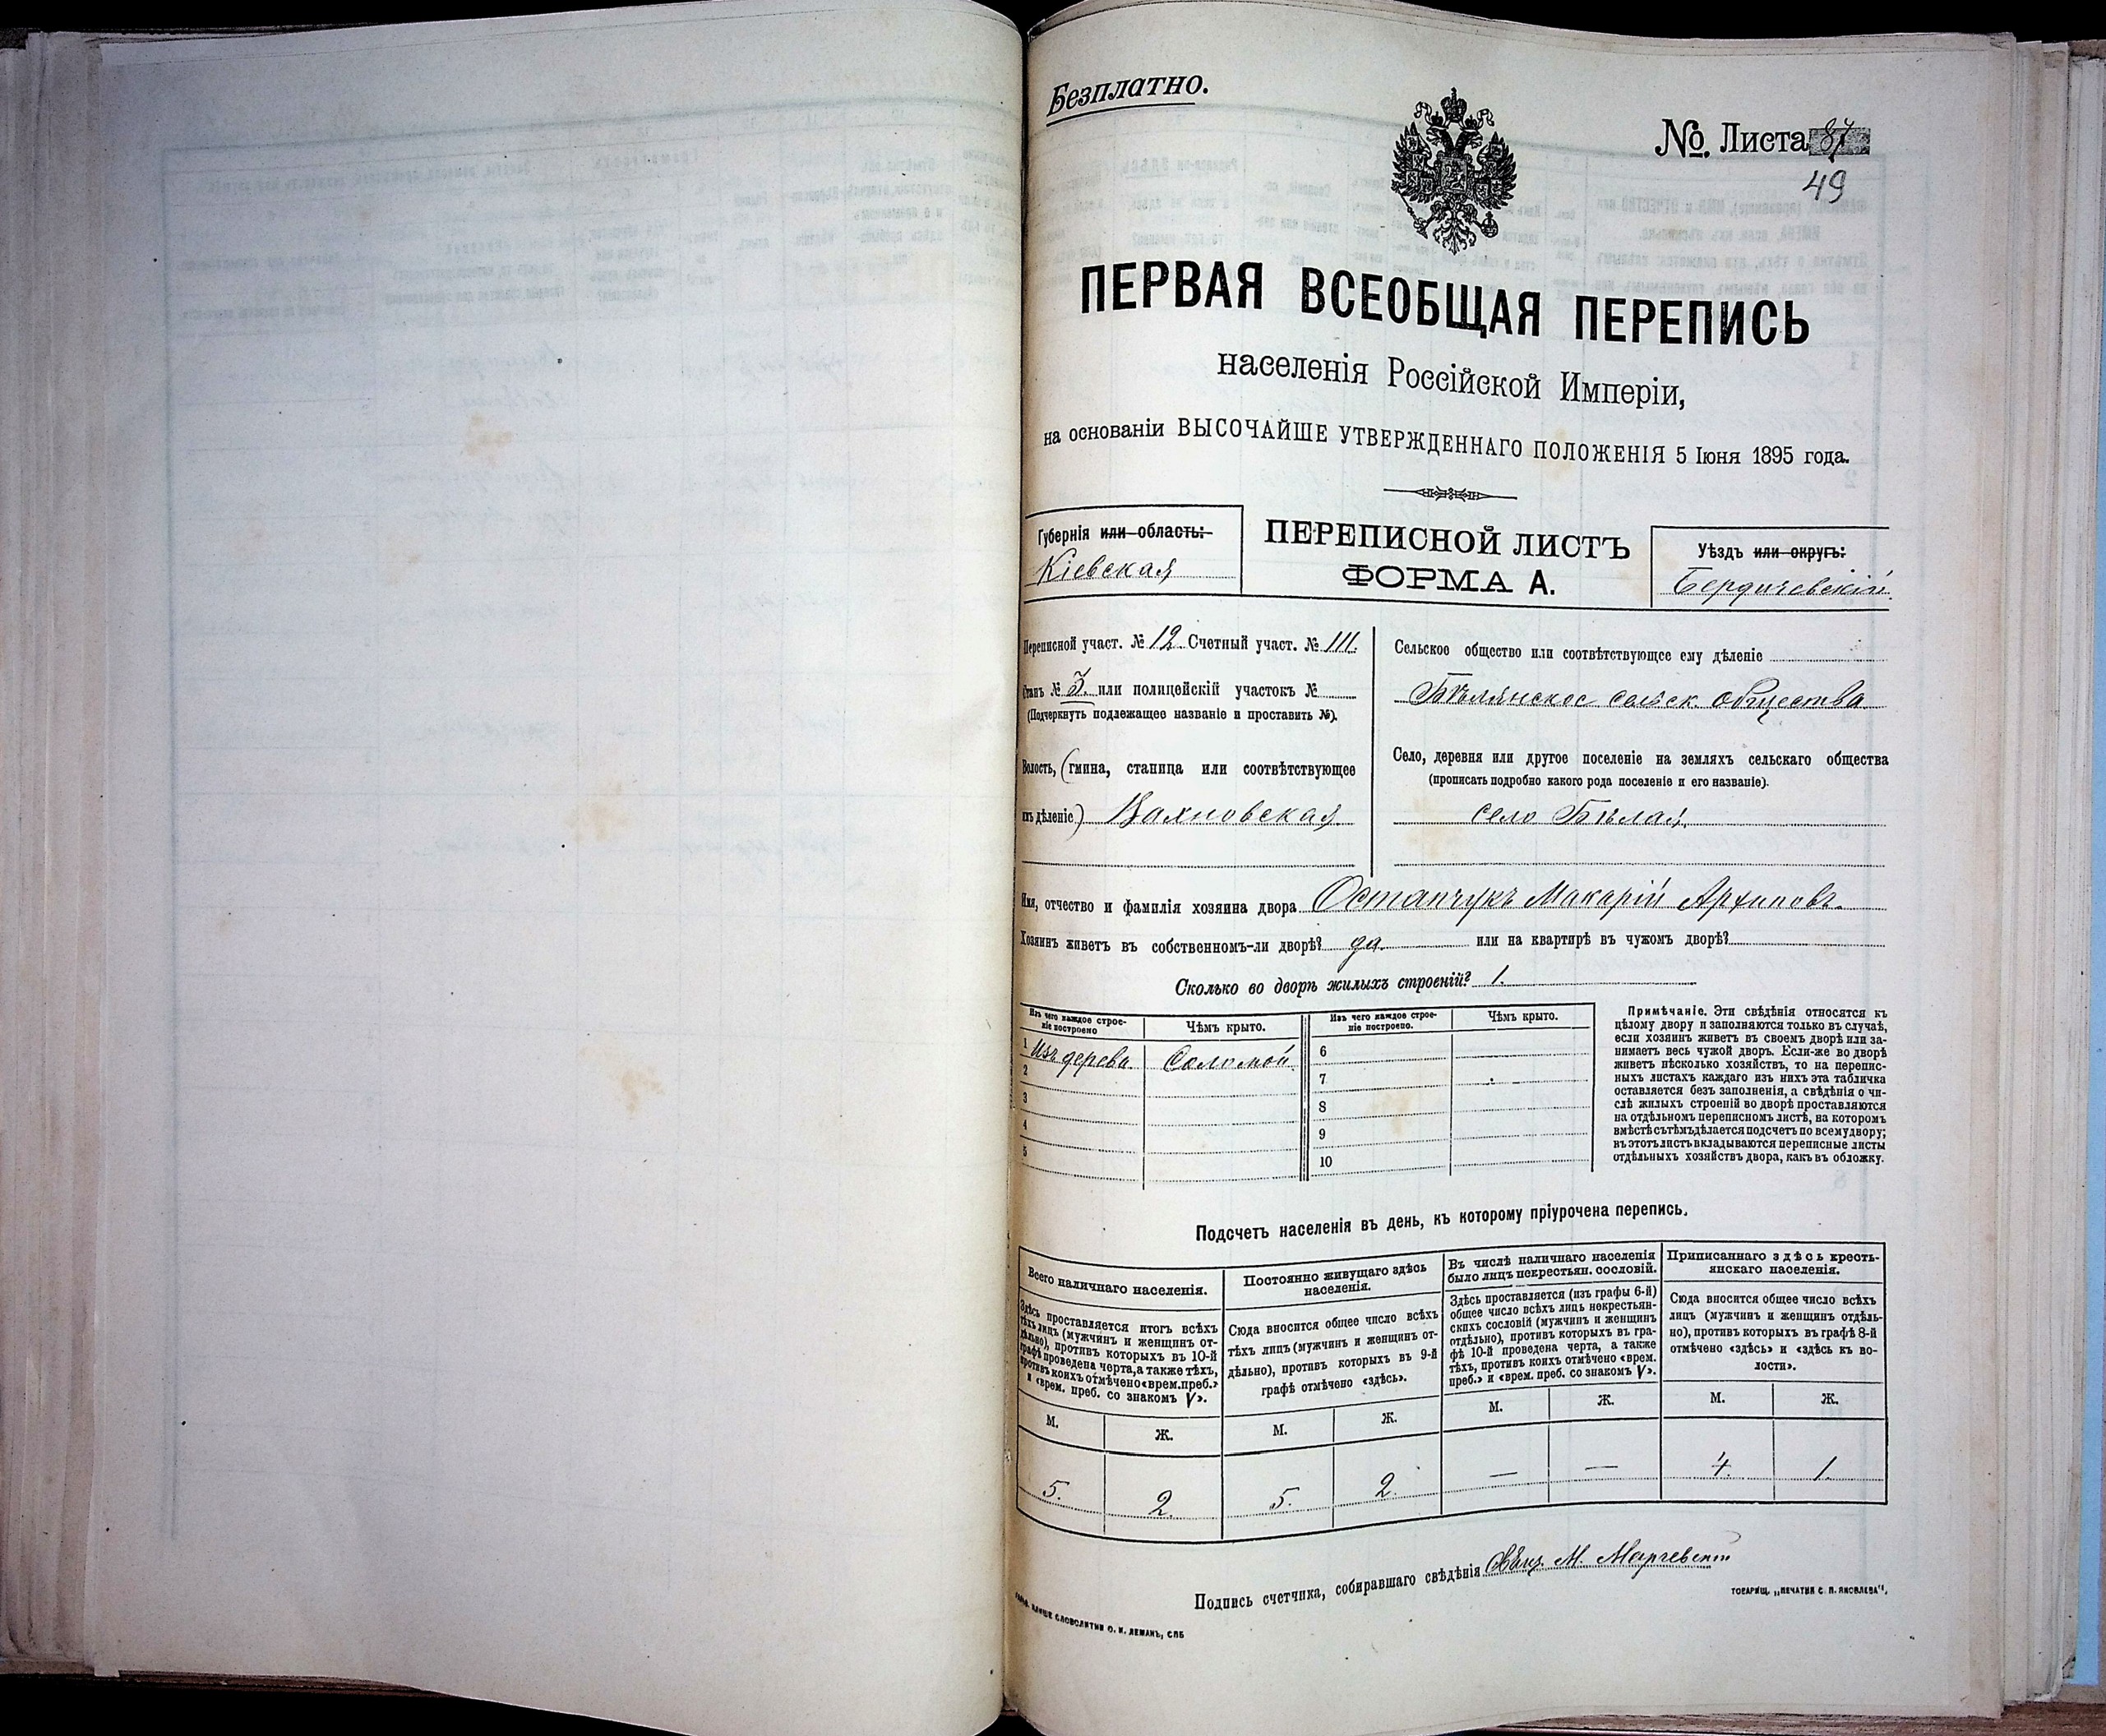 Безплатно.
№. Листа 87
49
ПЕРВАЯ ВСЕОБЩАЯ ПЕРЕПИСЬ
населенія Россійской Имперіи,
на основаніи ВЫСОЧАЙШЕ УТВЕРЖДЕННАГО ПОЛОЖЕНІЯ 5 Іюня 1895 года.
Губернія или область:
Кіевская
ПЕРЕПИСНОЙ ЛИСТЪ
ФОРМА А.
Уѣздъ или округъ:
Бердичевскій
Переписной участ. № 12 Счетный участ. № 111.
Станъ № 3. или полицейскій участокъ №
(Подчеркнуть подлежащее названіе и проставить №).
Волость, (гмина, станица или соотвѣтствующее
имъ дѣленіе) Вахновская
Сельское общество или соотвѣтствующее ему дѣленіе
Бѣлянское сельск. общества
Село, деревня или другое поселеніе на земляхъ сельскаго общества
(прописать подробно какого рода поселеніе и его названіе).
село Бѣлая
Имя, отчество и фамилія хозяина двора Остапчукъ Макарій Архиповъ
Хозяинъ живетъ въ собственномъ-ли дворѣ? да. или на квартирѣ въ чужомъ дворѣ?
Сколько во дворѣ жилыхъ строеній? 1.
Изъ чего каждое строе-
ніе построено
Чѣмъ крыто.
Изъ чего каждое строе-
ніе построено.
Чѣмъ крыто.
1 Изъ дерева Соломой
2
3
4
5
6
7
8
9
10
Примѣчаніе. Эти свѣдѣнія относятся къ
цѣлому двору и заполняются только въ случаѣ,
если хозяинъ живетъ въ своемъ дворѣ или за-
нимаетъ весь чужой дворъ. Если-же во дворѣ
живетъ нѣсколько хозяйствъ, то на перепис-
ныхъ листахъ каждаго изъ нихъ эта табличка
оставляется безъ заполненія, а свѣдѣнія о чи-
слѣ жилыхъ строеній во дворѣ проставляются
на отдѣльномъ переписномъ листѣ, на которомъ
вмѣстѣ съ тѣмъ дѣлается подсчетъ по всему двору;
въ этотъ листъ вкладываются переписные листы
отдѣльныхъ хозяйствъ двора, какъ въ обложку.
Подсчетъ населенія въ день, къ которому пріурочена перепись.
Всего наличнаго населенія.
Здѣсь проставляется итогъ всѣхъ
тѣхъ лицъ (мужчинъ и женщинъ от-
дѣльно), противъ которыхъ въ 10-й
графѣ проведена черта, а также тѣхъ,
противъ коихъ отмѣчено «врем. преб.»
и «врем. преб. со знакомъ V».
Постоянно живущаго здѣсь
населенія.
Сюда вносится общее число всѣхъ
тѣхъ лицъ (мужчинъ и женщинъ от-
дѣльно), противъ которыхъ въ 9-й
графѣ отмѣчено «здѣсь».
Въ числѣ наличнаго населенія
было лицъ некрестьян. сословій.
Здѣсь проставляется (изъ графы 6-й)
общее число всѣхъ лицъ некрестьян-
скихъ сословій (мужчинъ и женщинъ
отдѣльно), противъ которыхъ въ гра-
фѣ 10-й проведена черта, а также
тѣхъ, противъ коихъ отмѣчено «врем.
преб.» и «врем. преб. со знакомъ V».
Приписаннаго здѣсь кресть-
янскаго населенія.
Сюда вносится общее число всѣхъ
лицъ (мужчинъ и женщинъ отдѣль-
но), противъ которыхъ въ графѣ 8-й
отмѣчено «здѣсь» и «здѣсь къ во-
лости».
М. Ж. М. Ж. М. Ж. М. Ж.
5. 2. 5. 2. — — 4. 1.
Подпись счетчика, собиравшаго свѣдѣнія М.
ТОВАРИЩ. „ПЕЧАТНЯ С. П. ЯКОВЛЕВА".
СЛОВОЛИТНИ О. И. ЛЕМАНЪ, СПБ